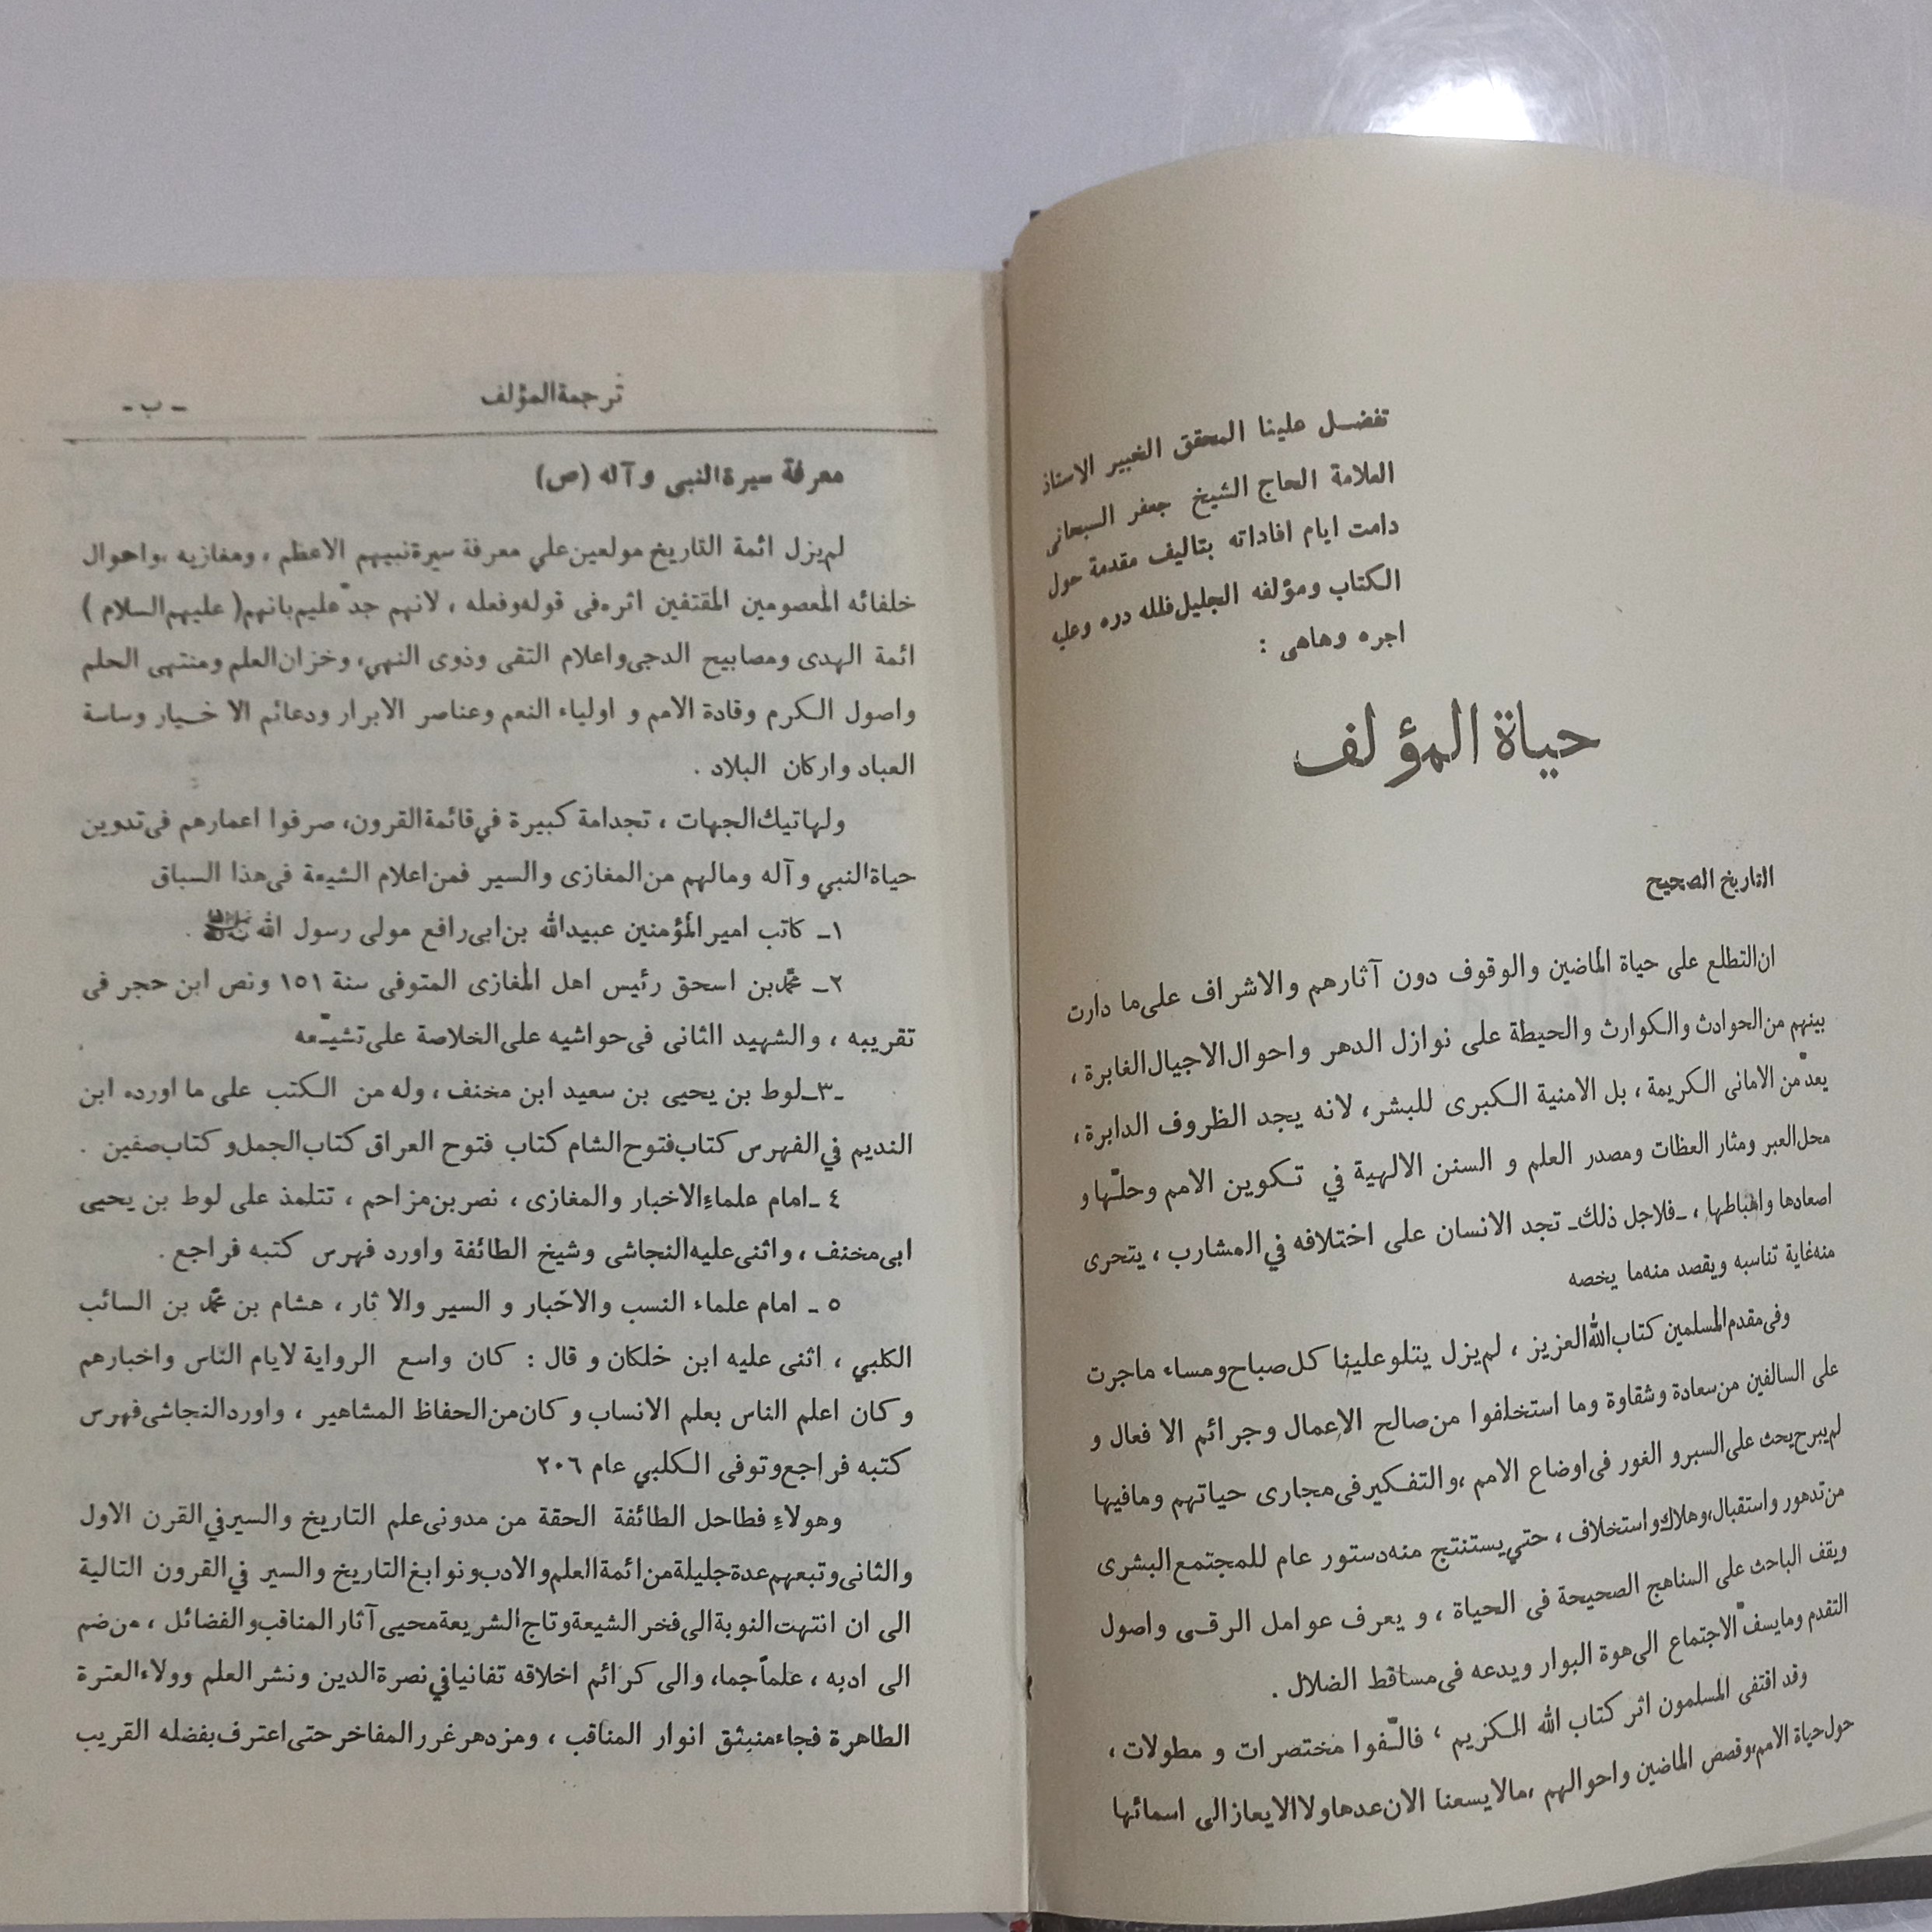 تفضل علينا المحقق الخبير الاستاذ
العلامة الحاج الشيخ جعفر السبحانى
دامت ايام افاداته بتاليف مقدمة حول
الكتاب ومؤلفه الجليل فلله دره وعليه
اجره وهاهى :
حياة المؤلف
التاريخ الصحيح
ان التطلع على حياة الماضين والوقوف دون آثارهم والاشراف على ما دارت
بينهم من الحوادث والكوارث والحيطة على نوازل الدهر واحوال الاجيال الغابرة ،
يعدّ من الامانى الكريمة ، بل الامنية الكبرى للبشر، لانه يجد الظروف الدابرة ،
محل العبر ومثار العظات ومصدر العلم و السنن الالهية في تكوين الامم وحلّها و
اصعادها واهباطها ، ـ فلاجل ذلك ـ تجد الانسان على اختلافه في المشارب ، يتحرى
منه غاية تناسبه ويقصد منه ما يخصه
وفى مقدم المسلمين كتاب الله العزيز ، لم يزل يتلو علينا كل صباح ومساء ماجرت
على السالفين من سعادة وشقاوة وما استخلفوا من صالح الاعمال وجرائم الا فعال و
لم يبرح يحث على السبر و الغور فى اوضاع الامم ، والتفكير فى مجارى حياتهم ومافيها
من تدهور واستقبال، وهلاك واستخلاف ، حتي يستنتج منه دستور عام للمجتمع البشرى
ويقف الباحث على المناهج الصحيحة فى الحياة ، و يعرف عوامل الرقى واصول
التقدم ومايسفّ الاجتماع الى هوة البوار ويدعه فى مساقط الضلال .
وقد اقتفى المسلمون اثر كتاب الله الكريم ، فالّفوا مختصرات و مطولات ،
حول حياة الامم، وقصص الماضين واحوالهم ، مالايسعنا الان عدها ولا الايعاز الى اسمائها
ـ ب ـ ترجمة المؤلف
معرفة سيرة النبى وآله (ص)
لم يزل ائمة التاريخ مولعين علي معرفة سيرة نبيهم الاعظم ، ومغازيه ، واحوال
خلفائه المعصومين المقتفين اثره فى قوله وفعله ، لانهم جدّ عليم بانهم ( عليهم السلام )
ائمة الهدى ومصابيح الدجى واعلام التقى وذوى النهي، وخزان العلم ومنتهى الحلم
واصول الكرم وقادة الامم و اولياء النعم وعناصر الابرار ودعائم الا خيار وساسة
العباد واركان البلاد .
ولهاتيك الجهات ، تجد امة كبيرة في قائمة القرون، صرفوا اعمارهم فى تدوين
حياة النبي وآله ومالهم من المغازى والسير فمن اعلام الشيعة فى هذا السباق
١ـ كاتب امير المؤمنين عبيد الله بن ابى رافع مولى رسول الله .
٢ـ محمد بن اسحق رئيس اهل المغازى المتوفى سنة ١٥١ ونص ابن حجر فى
تقريبه ، والشهيد الثانى فى حواشيه على الخلاصة على تشيّعه
ـ٣ـ لوط بن يحيى بن سعيد ابن مخنف ، وله من الكتب على ما اورده ابن
النديم في الفهرس كتاب فتوح الشام كتاب فتوح العراق كتاب الجمل و كتاب صفين .
٤ ـ امام علماء الاخبار والمغازى ، نصر بن مزاحم ، تتلمذ على لوط بن يحيى
ابى مخنف ، واثنى عليه النجاشى وشيخ الطائفة واورد فهرس كتبه فراجع .
٥ ـ امام علماء النسب والاخبار و السير والا ثار ، هشام بن محمد بن السائب
الكلبي ، اثنى عليه ابن خلكان و قال : كان واسع الرواية لايام الناس واخبارهم
و كان اعلم الناس بعلم الانساب و كان من الحفاظ المشاهير ، واورد النجاشى فهرس
كتبه فراجع وتوفى الكلبي عام ٢٠٦
وهولاء فطاحل الطائفة الحقة من مدونى علم التاريخ والسير في القرن الاول
والثانى وتبعهم عدة جليلة من ائمة العلم والادب ونوابغ التاريخ والسير في القرون التالية
الى ان انتهت النوبة الى فخر الشيعة وتاج الشريعة محيى آثار المناقب والفضائل ، من ضم
الى ادبه ، علماً جما، والى كرائم اخلاقه تفانيا في نصرة الدين ونشر العلم وولاء العترة
الطاهرة فجاء منبثق انوار المناقب ، ومزدهر غرر المفاخر حتى اعترف بفضله القريب